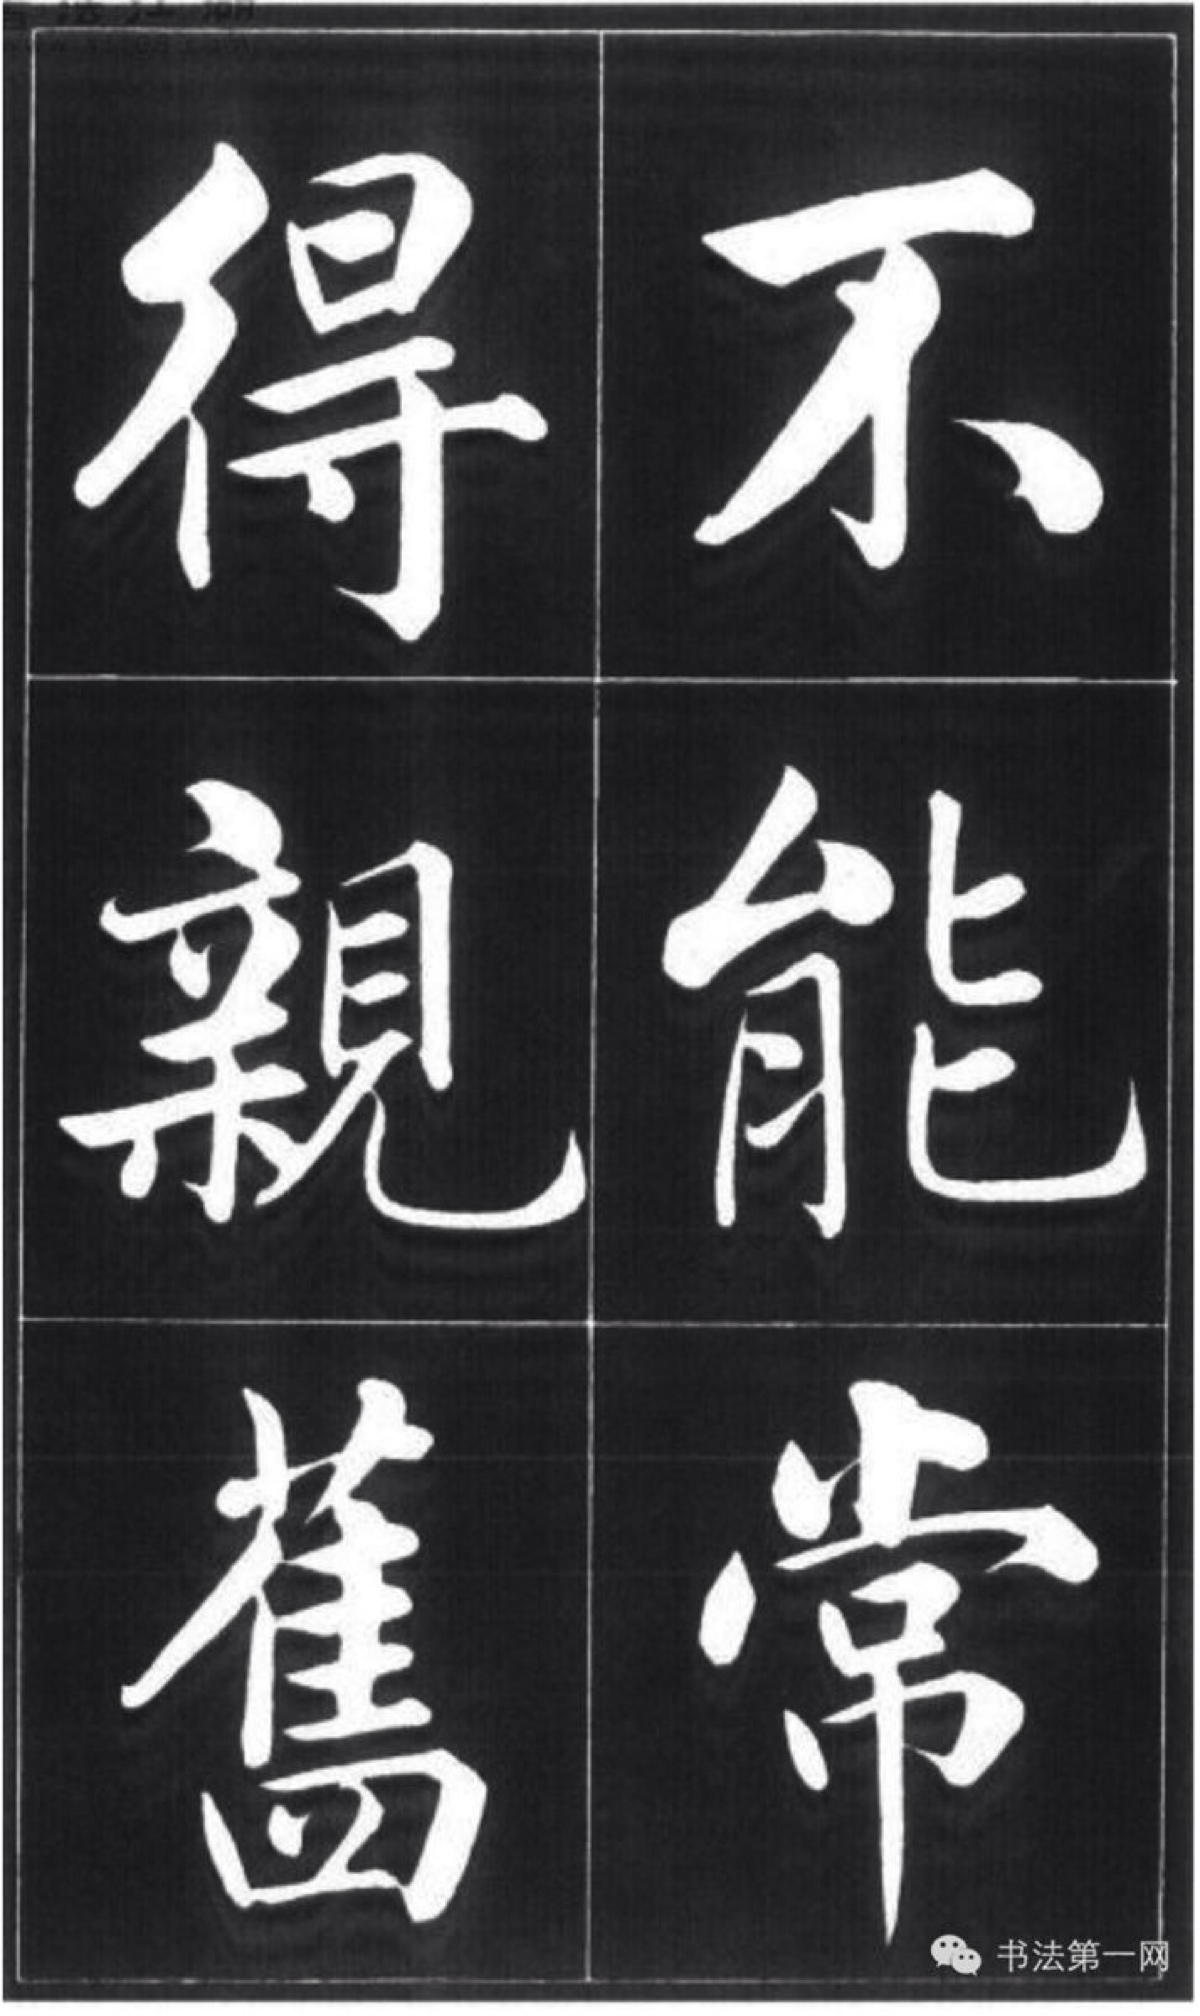 不能常
得親舊
书法第一网